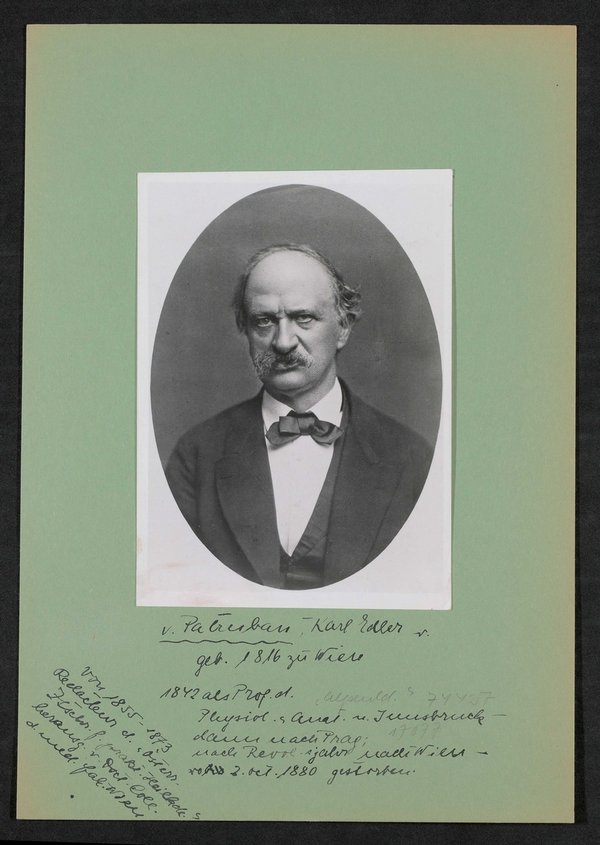 v. Patruban, Karl Edler v.
geb. 1816 zu Wien
1842 als Prof. d.
Physiol. u. Anat. n. Innsbruck
dann nach Prag;
nach Revol.-jahr nach Wien –
2. Oct. 1880 gestorben.
von 1855-1873
Redacteur d. "Österr.
Ztschr. f. prakt. Heilkde."
herausg. v. Doct. Coll.
d. med. Fak. Wien